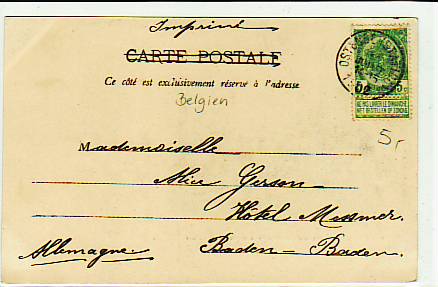 Imprimé
CARTE POSTALE
Ce côté est exclusivement réservé à l'adresse
Belgien
NE PAS LIVRER LE DIMANCHE
NIET BESTELLEN OP ZONDAG
5
Mademoiselle
Alice Gerson
Hôtel Messmer.
Allemagne. Baden-Baden.